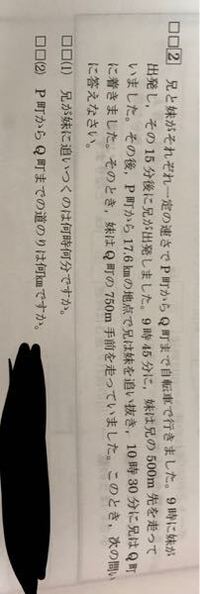 □□2 兄と妹がそれぞれ一定の速さでP町からQ町まで自転車で行きました。9時に妹が
出発し，その15分後に兄が出発しました。9時45分に，妹は兄の500m先を走って
いました。その後，P町から17.6kmの地点で兄は妹を追い抜き，10時30分に兄はQ町
に着きました。そのとき，妹はQ町の750m手前を走っていました。このとき，次の問い
に答えなさい。
□□(1) 兄が妹に追いつくのは何時何分ですか。
□□(2) P町からQ町までの道のりは何kmですか。